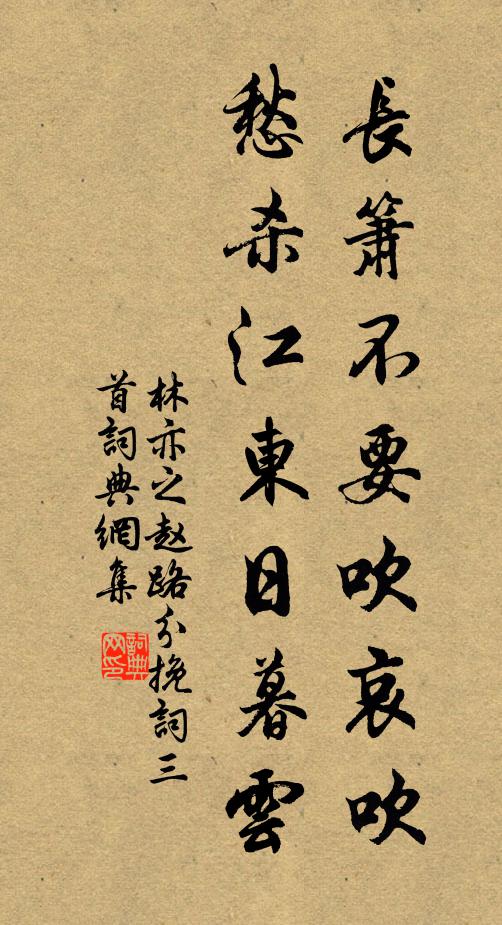 長簫不要吹哀吹
愁杀江東日暮雲
林亦之赵路分挽詞三
首詞典網集
詞典
网印